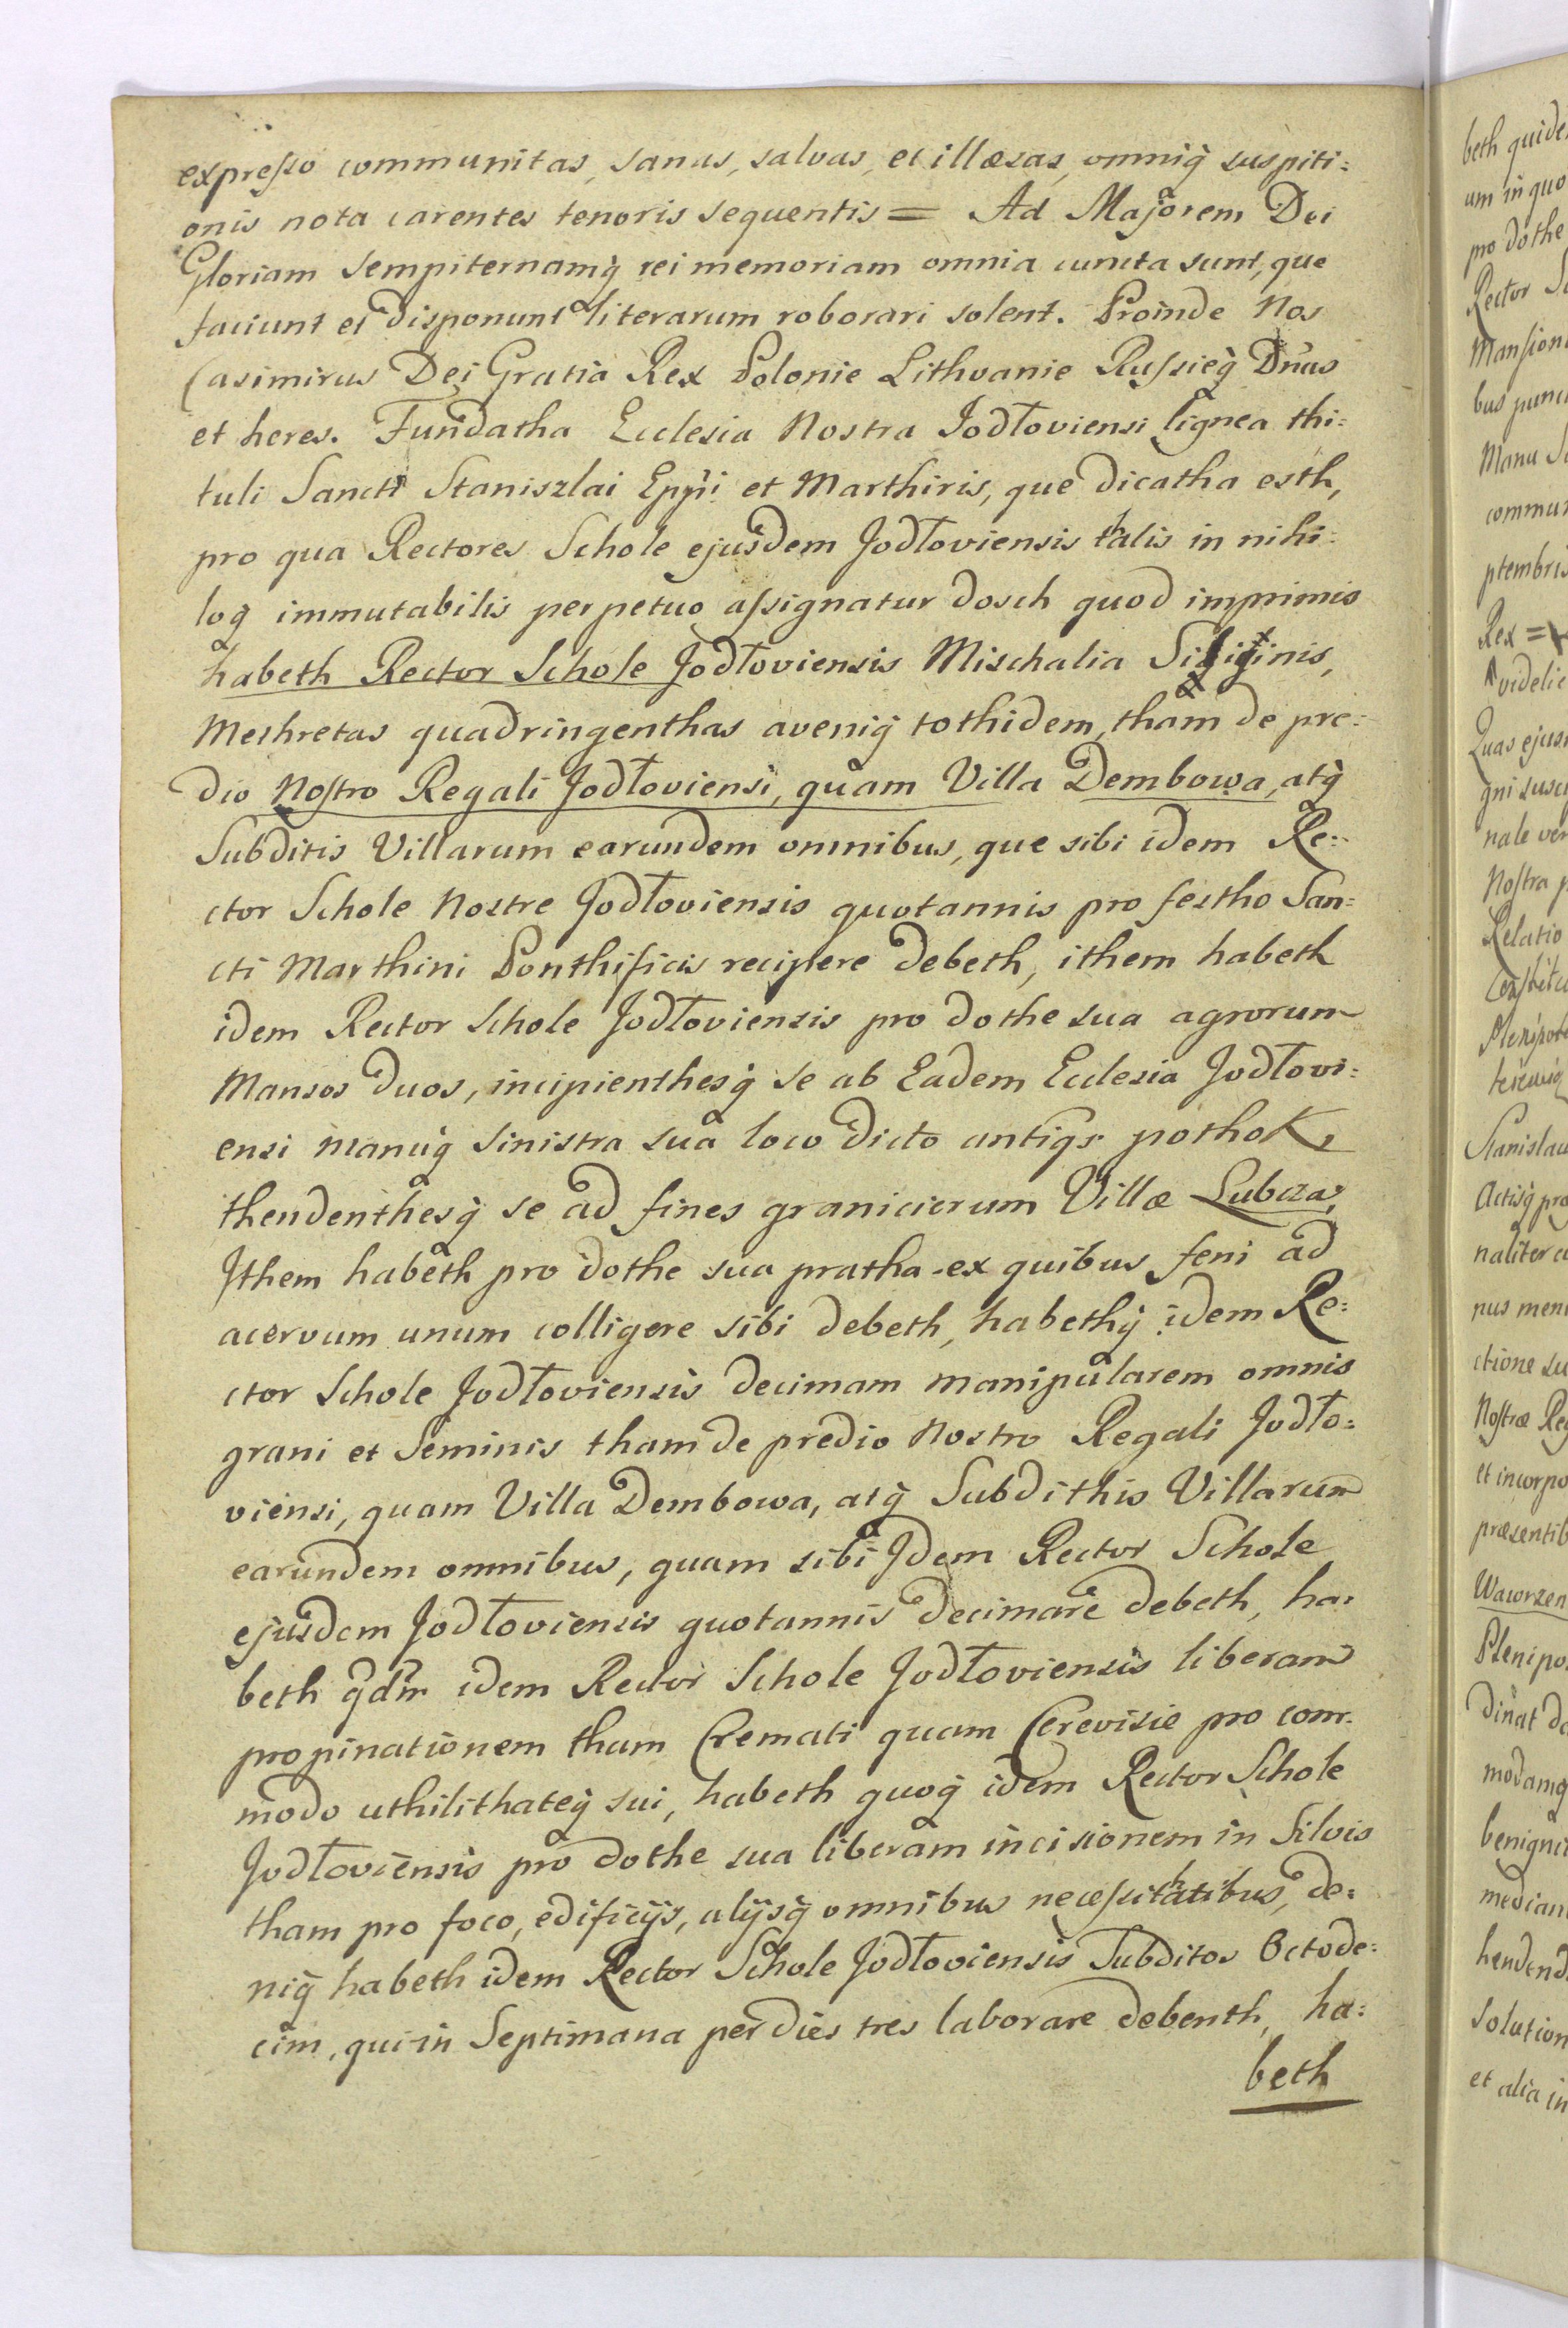 expresso communitas, sanas, salvas, et illæsas, omniq̀ suspiti=
onis nota carentes tenoris sequentis = Ad Majorem Dei
Gloriam sempiternamq̀ rei memoriam omnia cuncta sunt, que
faciunt et disponunt literarum roborari solent. Proinde Nos
Casimirus Dei Gratia Rex Polonie Lithvanie Russieq̀ Dnũs
et heres. Fundatha Ecclesia Nostra Jodłoviensi lignea thi=
tuli Sancti Staniszlai Eppi et Marthiris, que dicatha esth,
pro qua Rectores Schole ejusdem Jodłoviensis thalis in nihi=
loq̀ immutabilis perpetuo assignatur dosch quod imprimis
habeth Rector Schole Jodłoviensis Mischalia
Methretas quadringenthas aveniq̀ tothidem, tham de pre=
dio Nostro Regali Jodłoviensi, quam Villa Dembowa, atq̀
Subditis Villarum earundem omnibus, que sibi idem Re=
ctor Schole Nostre Jodłoviensis quotannis pro festho San=
cti Marthini Ponthificis recipere debeth, ithem habeth
idem Rector Schole Jodłoviensis pro dothe sua agrorum
Mansos duos, incipienthesq̀ se ab Eadem Ecclesia Jodłovi=
ensi manuq̀ sinistra sua loco dicto antiqs pothok,
thendenthesq̀ se ad fines granicierum Villæ Lubcza,
Ithem habeth pro dothe sua pratha ex quibus feni ad
acervum unum colligere sibi debeth, habethq̀ idem Re=
ctor Schole Jodłoviensis decimam manipularem omnis
grani et Seminis tham de predio Nostro Regali Jodło=
viensi, quam Villa Dembowa, atq̀ Subdithis Villarum
earundem omnibus, quam sibi Idem Rector Schole
ejusdem Jodłoviensis quotannis decimare debeth, ha=
beth qdm idem Rector Schole Jodłoviensis liberam
propinationem tham Cremati quam Cerevisie pro com=
modo uthilithateq̀ sui, habeth quoq̀ idem Rector Schole
Jodłoviensis pro dothe sua liberam incisionem in Silvis
tham pro foco, edificijs, alijsq̀ omnibus necessithatibus, de=
niq̀ habeth idem Rector Schole Jodłoviensis Subditos Octode=
cim, qui in Septimana per dies tres laborare debenth, ha=
beth
beth quide
um in quo
pro dothe
Rector Sc
Mansion
bus
Manu
commun
ptembris
Rex =
videlic
Quas ejus
gni susc
nale ver
Nostra p
Relatio
Constitu
Plenipote
Stanislau
Actisq̀ pro
naliter c
pus men
ctione su
Nostræ Re
et incorpo
præsentib
Wawrzen
Plenipo
dinat
modamq̀
benigni
median
hendend
solution
et alia in